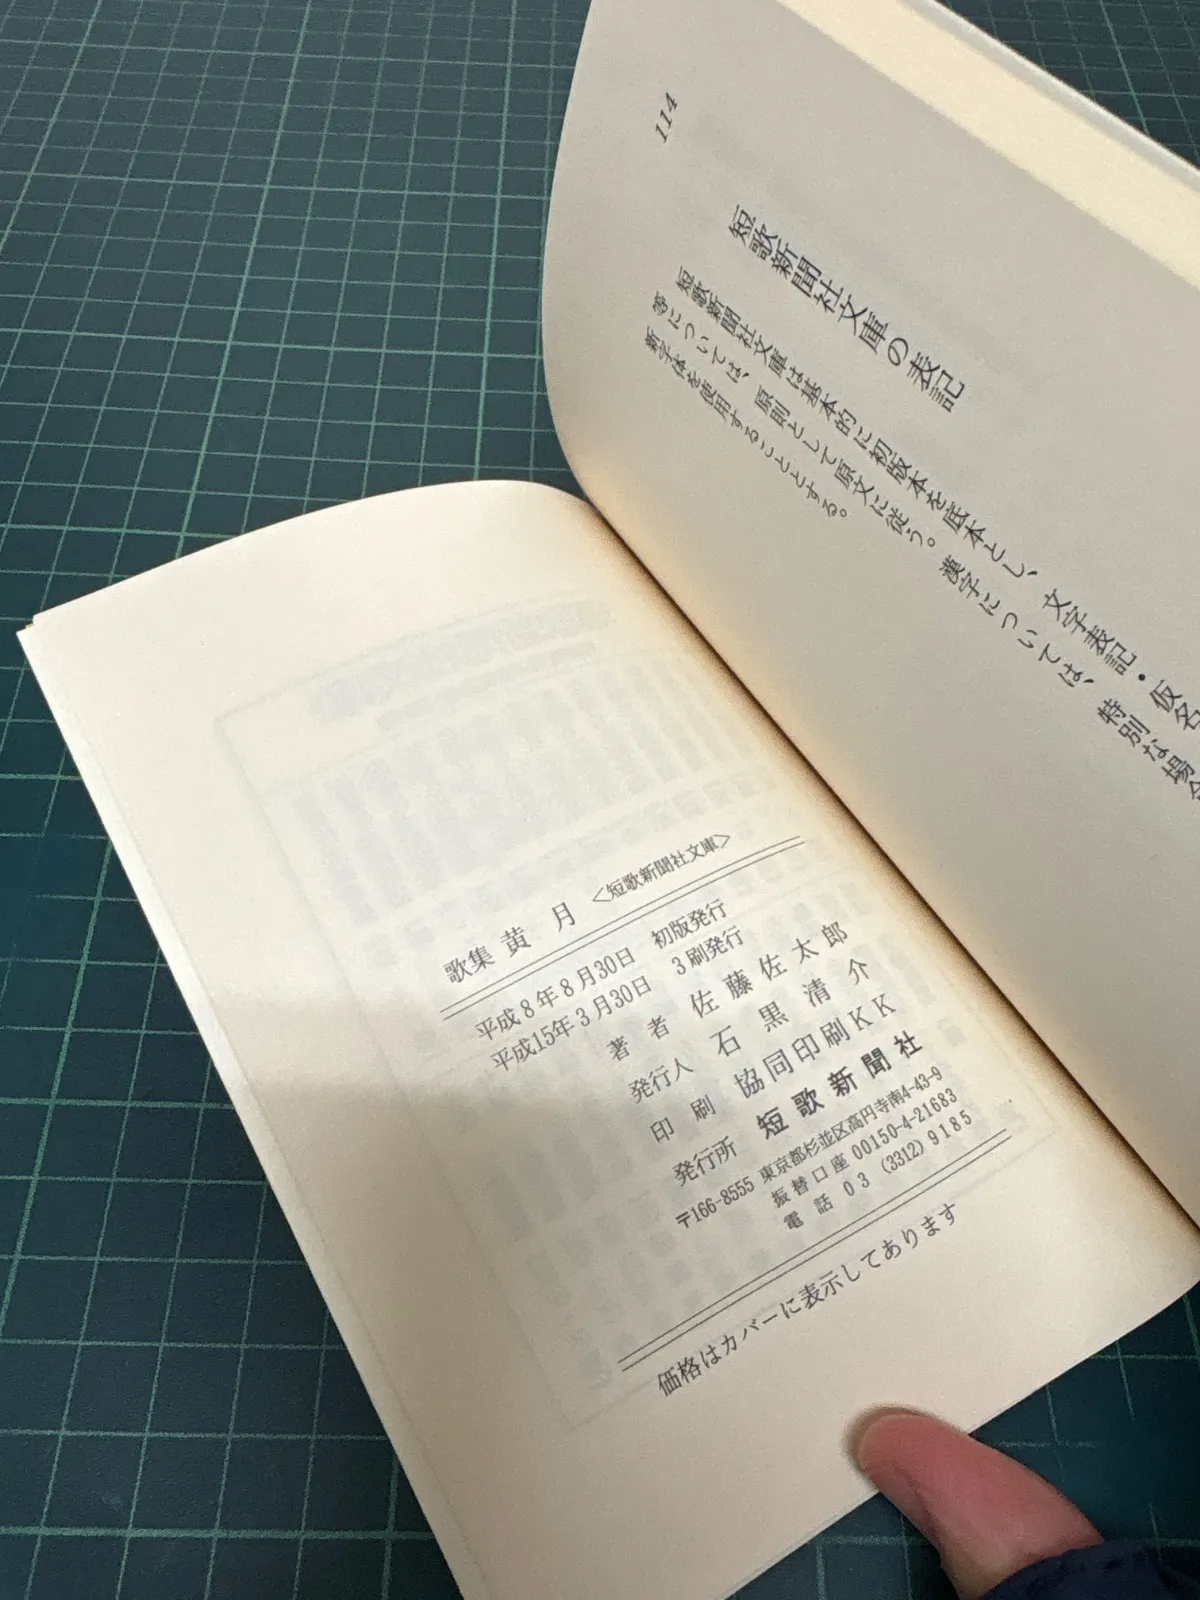 114
短歌新聞社文庫の表記
短歌新聞社文庫は基本的に初版本を底本とし、文字表記・仮名
等については、原則として原文に従う。漢字については、特別な場合
新字体を使用することとする。
歌集 黄月 <短歌新聞社文庫>
平成8年8月30日 初版発行
平成15年3月30日 3刷発行
著者 佐藤佐太郎
発行人 石黒清介
印刷 協同印刷KK
発行所 短歌新聞社
〒166-8555 東京都杉並区高円寺南4-43-9
振替口座 00150-4-21683
電話 03 (3312) 9185
価格はカバーに表示してあります